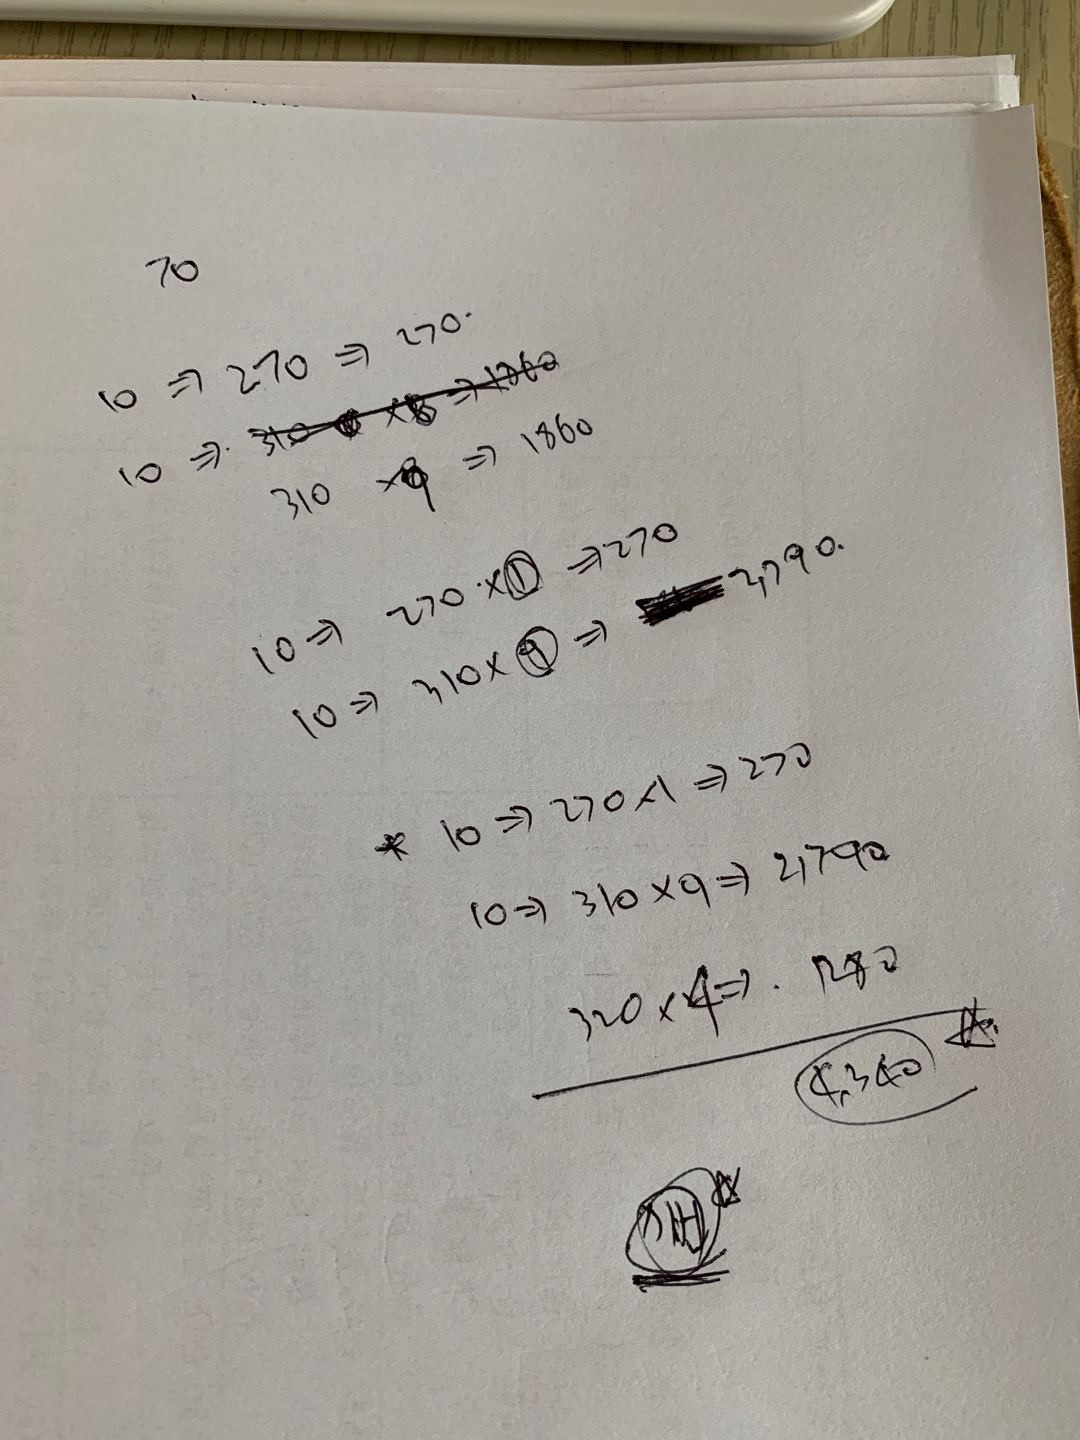 70
10 ⇒ 270 ⇒ 270.
10 ⇒. 310 ⇒ 1860
310 ×9 ⇒ 1860
10 ⇒ 270 ×① ⇒ 270
10 ⇒ 310 × ⑨ ⇒ 2,790.
* 10 ⇒ 270 ×1 ⇒ 270
10 ⇒ 310 × 9 ⇒ 2,790
320 × 4 ⇒. 1280
4,340